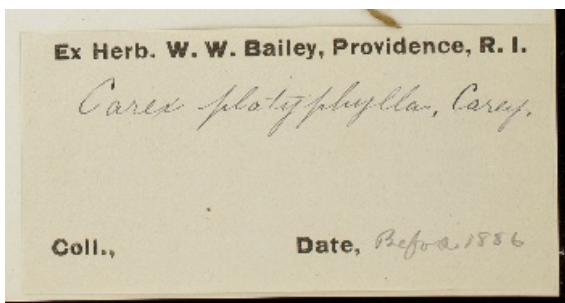 Ex Herb. W. W. Bailey, Providence, R. I.
Carex platyphylla, Carey.
Coll., Date, Before 1886